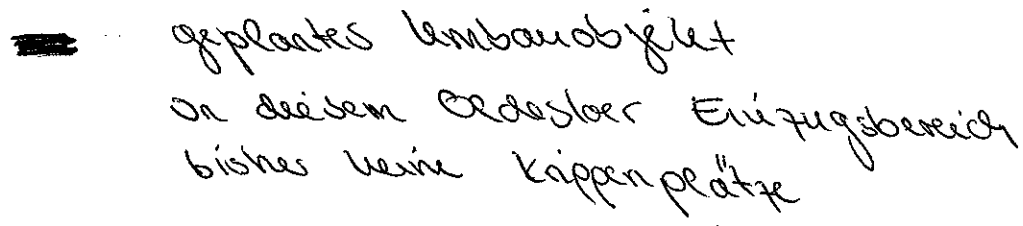 geplantes Umbauobjekt
in diesem Oldesloer Einzugsbereich
bisher keine Krippenplätze